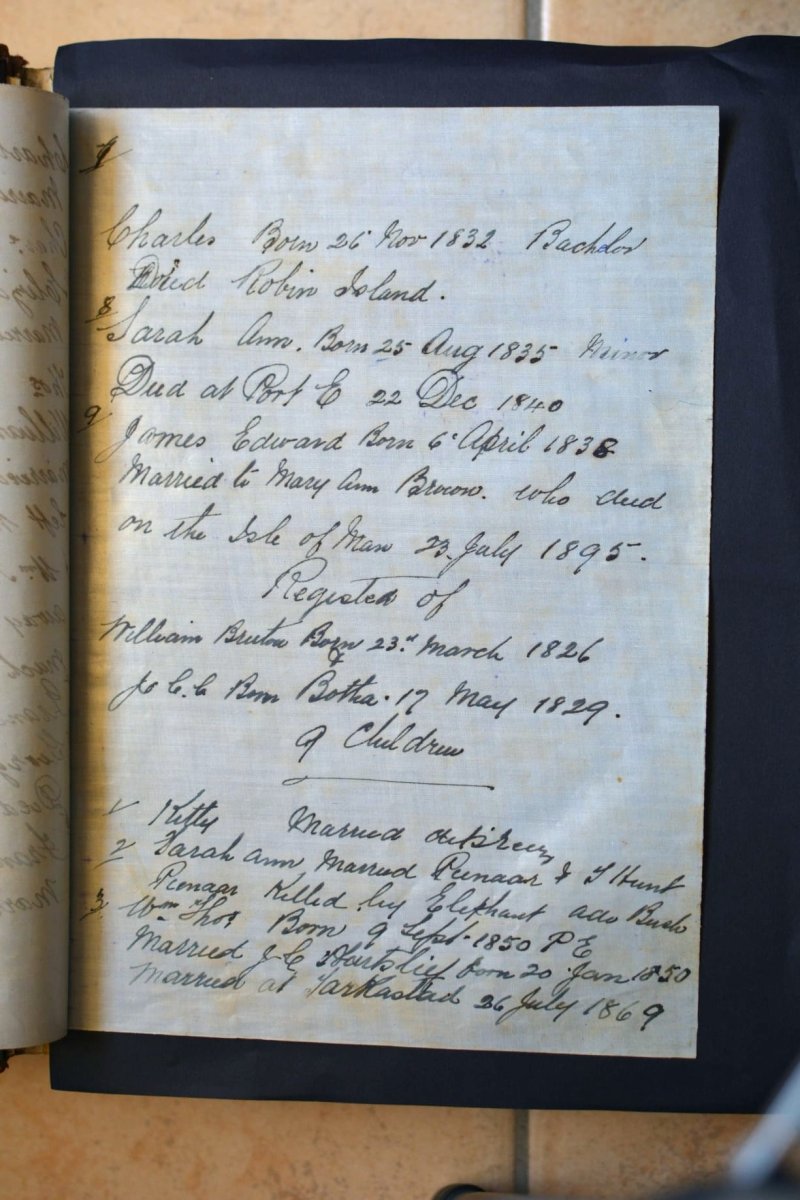 7
Charles Born 26 Nov 1832 Bachelor
Died Robin Island.
8 Sarah Ann. Born 25 Aug 1835 Minor
Died at Port E 22 Dec 1840
9 James Edward Born 6 April 1838
Married to Mary Ann Brown. who died
on the Isle of Man 23 July 1895.
Register of
William Bruton Born 23rd March 1826
&
J C. C Born Botha. 17 May 1829.
9 Children
1 Kitty Married deBreen
2 Sarah ann Married Pienaar & T Hunt
Pienaar Killed by Elephant ado Bush
3 Wm Thos Born 9 Sept. 1850 P E
Married J. C Hartslief born 20 Jan 1850
Married at Tarkastad 26 July 1869